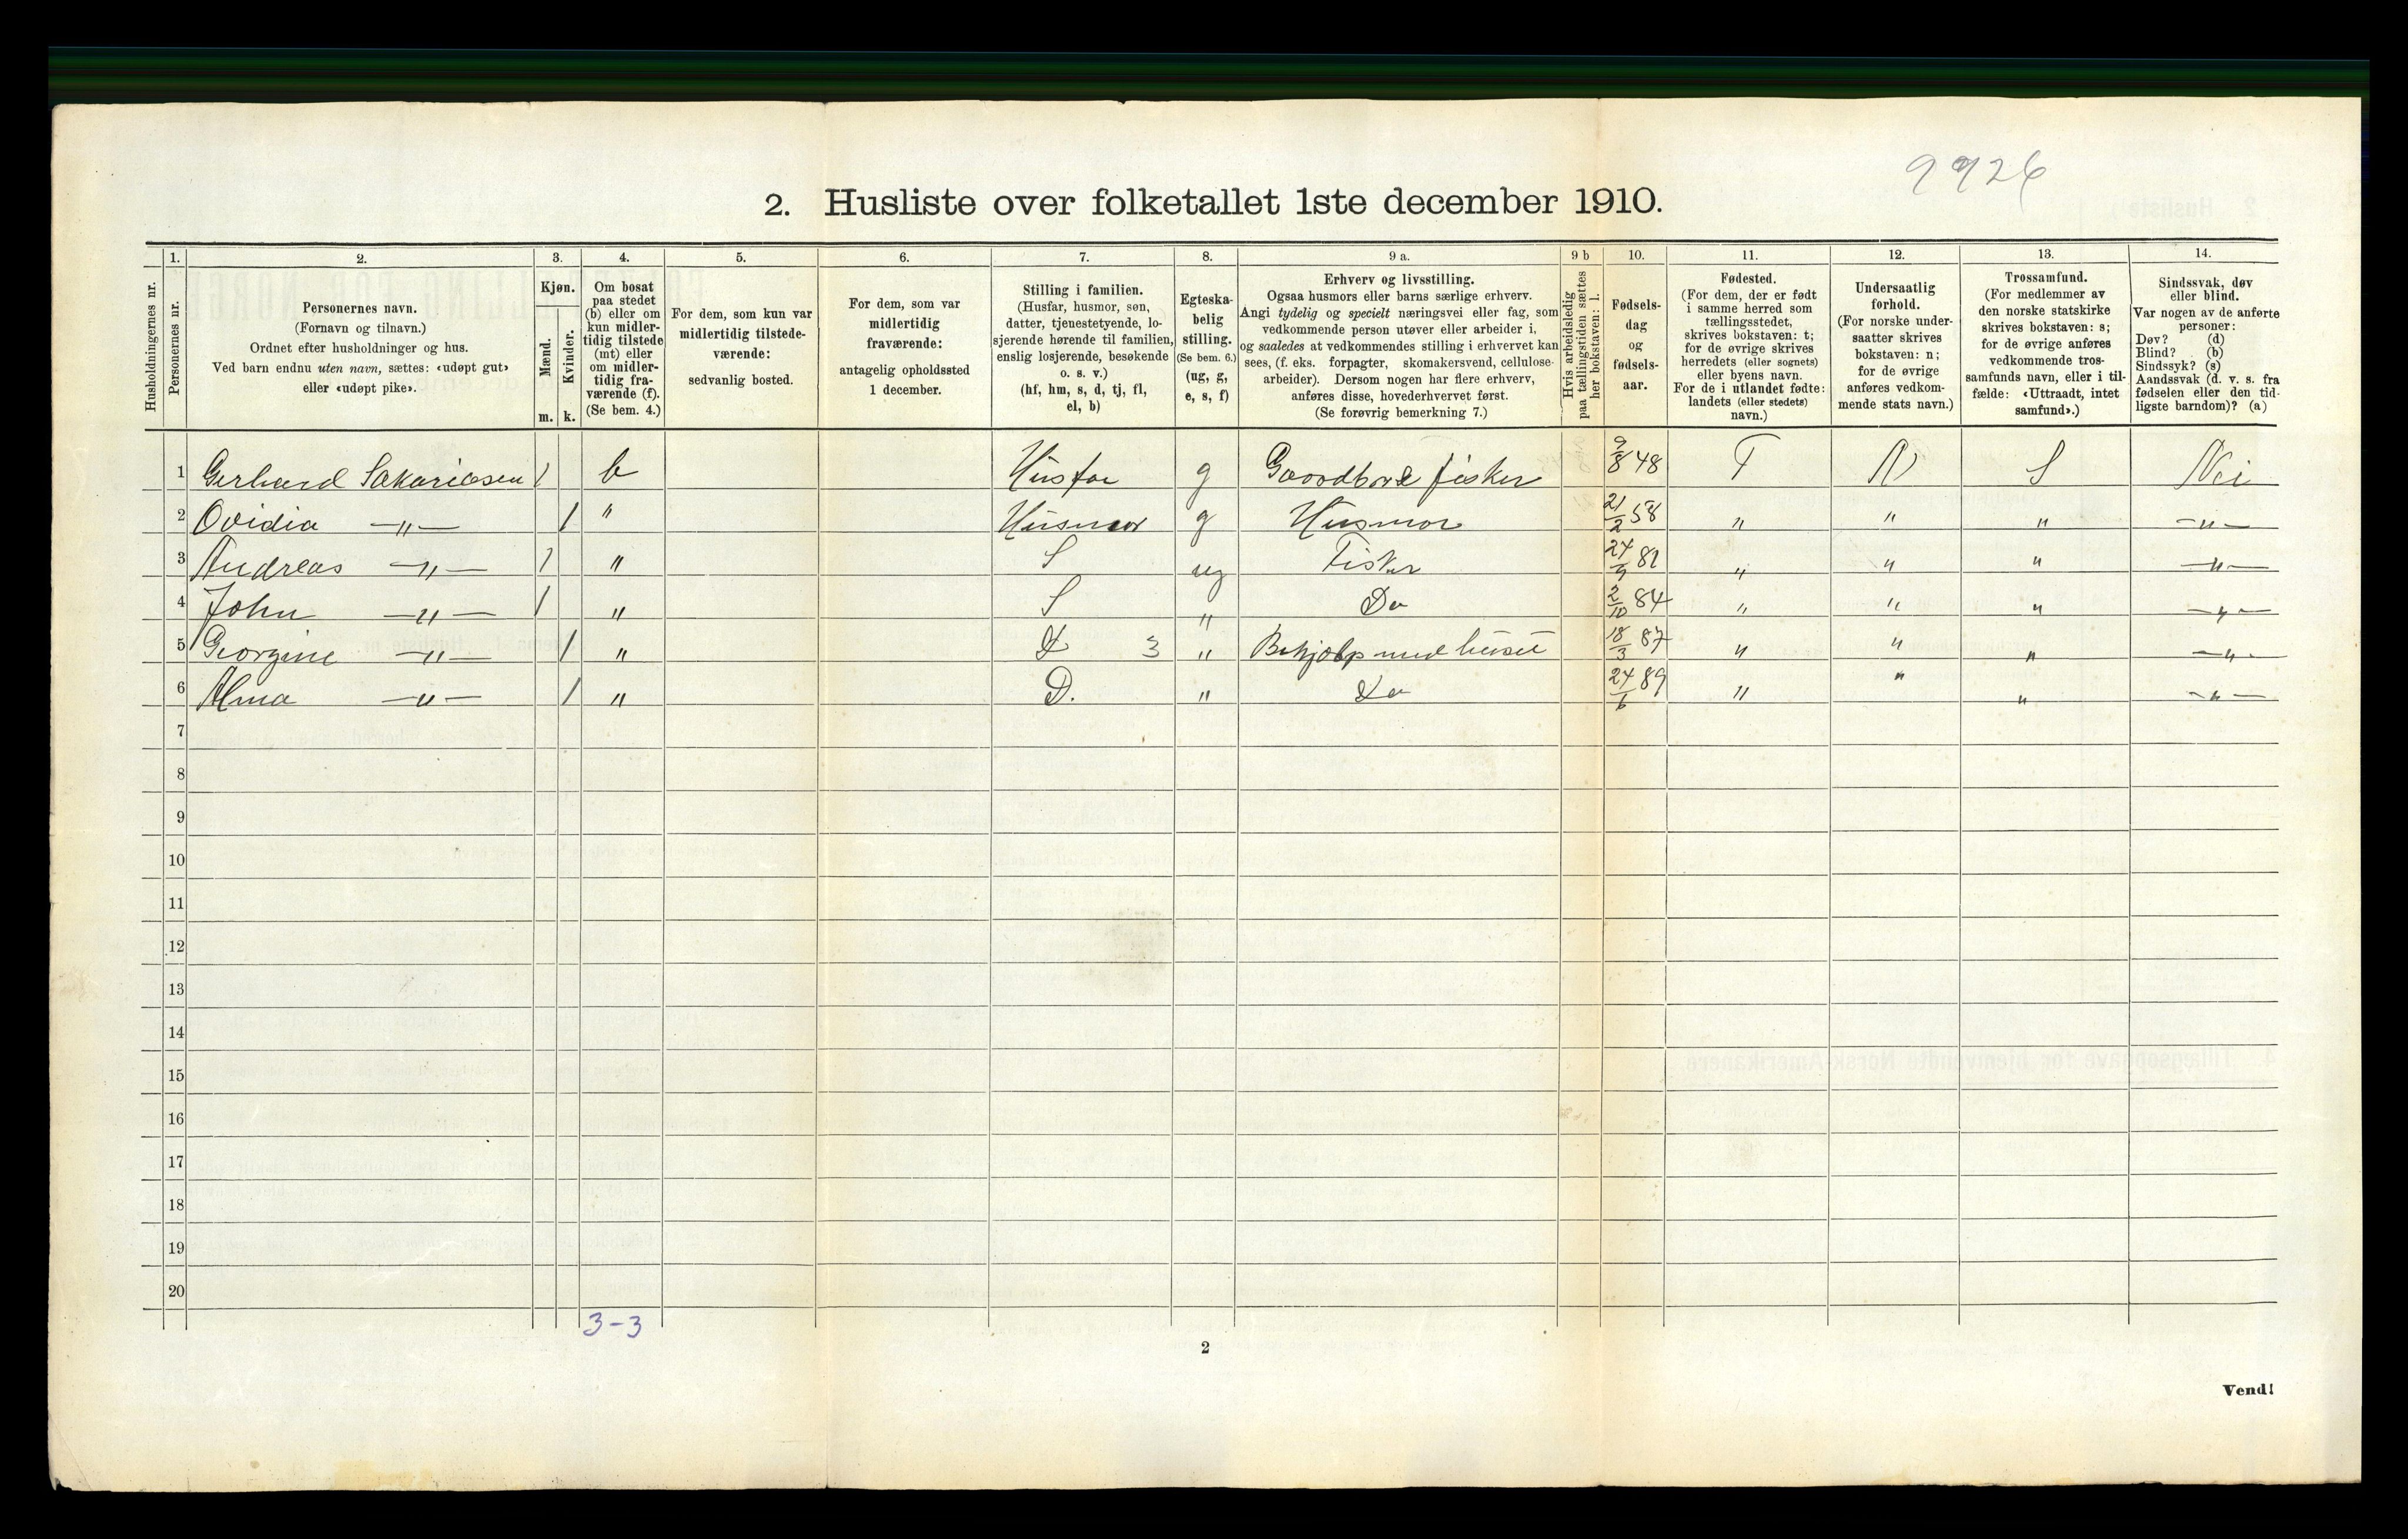 9926
2. Husliste over folketallet 1ste december 1910.
Husholdningernes nr.
1.
Personernes nr.
2.
Personernes navn.
(Fornavn og tilnavn.)
Ordnet efter husholdninger og hus.
Ved barn endnu uten navn, sættes: «udøpt gut»
eller «udøpt pike».
3.
Kjøn.
Mænd.
m.
Kvinder.
k.
4.
Om bosat
paa stedet
(b) eller om
kun midler-
tidig tilstede
(mt) eller
om midler-
tidig fra-
værende (f).
(Se bem. 4.)
5.
For dem, som kun var
midlertidig tilstede-
værende:
sedvanlig bosted.
6.
For dem, som var
midlertidig
fraværende:
antagelig opholdssted
1 december.
7.
Stilling i familien.
(Husfar, husmor, søn,
datter, tjenestetyende, lo-
sjerende hørende til familien,
enslig losjerende, besøkende
o. s. v.)
(hf, hm, s, d, tj, fl,
el, b)
8.
Egteska-
belig
stilling.
(Se bem. 6.)
(ug, g,
e, s, f)
9 a.
Erhverv og livsstilling.
Ogsaa husmors eller barns særlige erhverv.
Angi tydelig og specielt næringsvei eller fag, som
vedkommende person utøver eller arbeider i,
og saaledes at vedkommendes stilling i erhvervet kan
sees, (f. eks. forpagter, skomakersvend, cellulose-
arbeider). Dersom nogen har flere erhverv,
anføres disse, hovederhvervet først.
(Se forøvrig bemerkning 7.)
9 b
Hvis arbeidsledig
paa tællingstiden sættes
her bokstaven: l.
10.
Fødsels-
dag
og
fødsels-
aar.
11.
Fødested.
(For dem, der er født
i samme herred som
tællingsstedet,
skrives bokstaven: t;
for de øvrige skrives
herredets (eller sognets)
eller byens navn.
For de i utlandet fødte:
landets (eller stedets)
navn.)
12.
Undersaatlig
forhold.
(For norske under-
saatter skrives
bokstaven: n;
for de øvrige
anføres vedkom-
mende stats navn.)
13.
Trossamfund.
(For medlemmer av
den norske statskirke
skrives bokstaven: s;
for de øvrige anføres
vedkommende tros-
samfunds navn, eller i til-
fælde: «Uttraadt, intet
samfund».)
14.
Sindssvak, døv
eller blind.
Var nogen av de anførte
personer:
Døv? (d)
Blind? (b)
Sindssyk? (s)
Aandssvak (d. v. s. fra
fødselen eller den tid-
ligste barndom)? (a)
1 Gerhard Sakariasen 1 b Husfar g fisker 9/8 48 T N S Nei
2 Ovidia —"— 1 " Husmor g Husmor 21/2 58 " " " —"—
3 Andreas —"— 1 " S ug Fisker " " " —"—
4 John —"— 1 " S " Do 2/10 84 " " " —"—
5 Georgine —"— 1 " D 3 " Behjælp med huset 18/3 87 " " " —"—
6 Alma —"— 1 " D. " Do 24/6 89 " " " —"—
7
8
9
10
11
12
13
14
15
16
17
18
19
20
3-3
2
Vend!